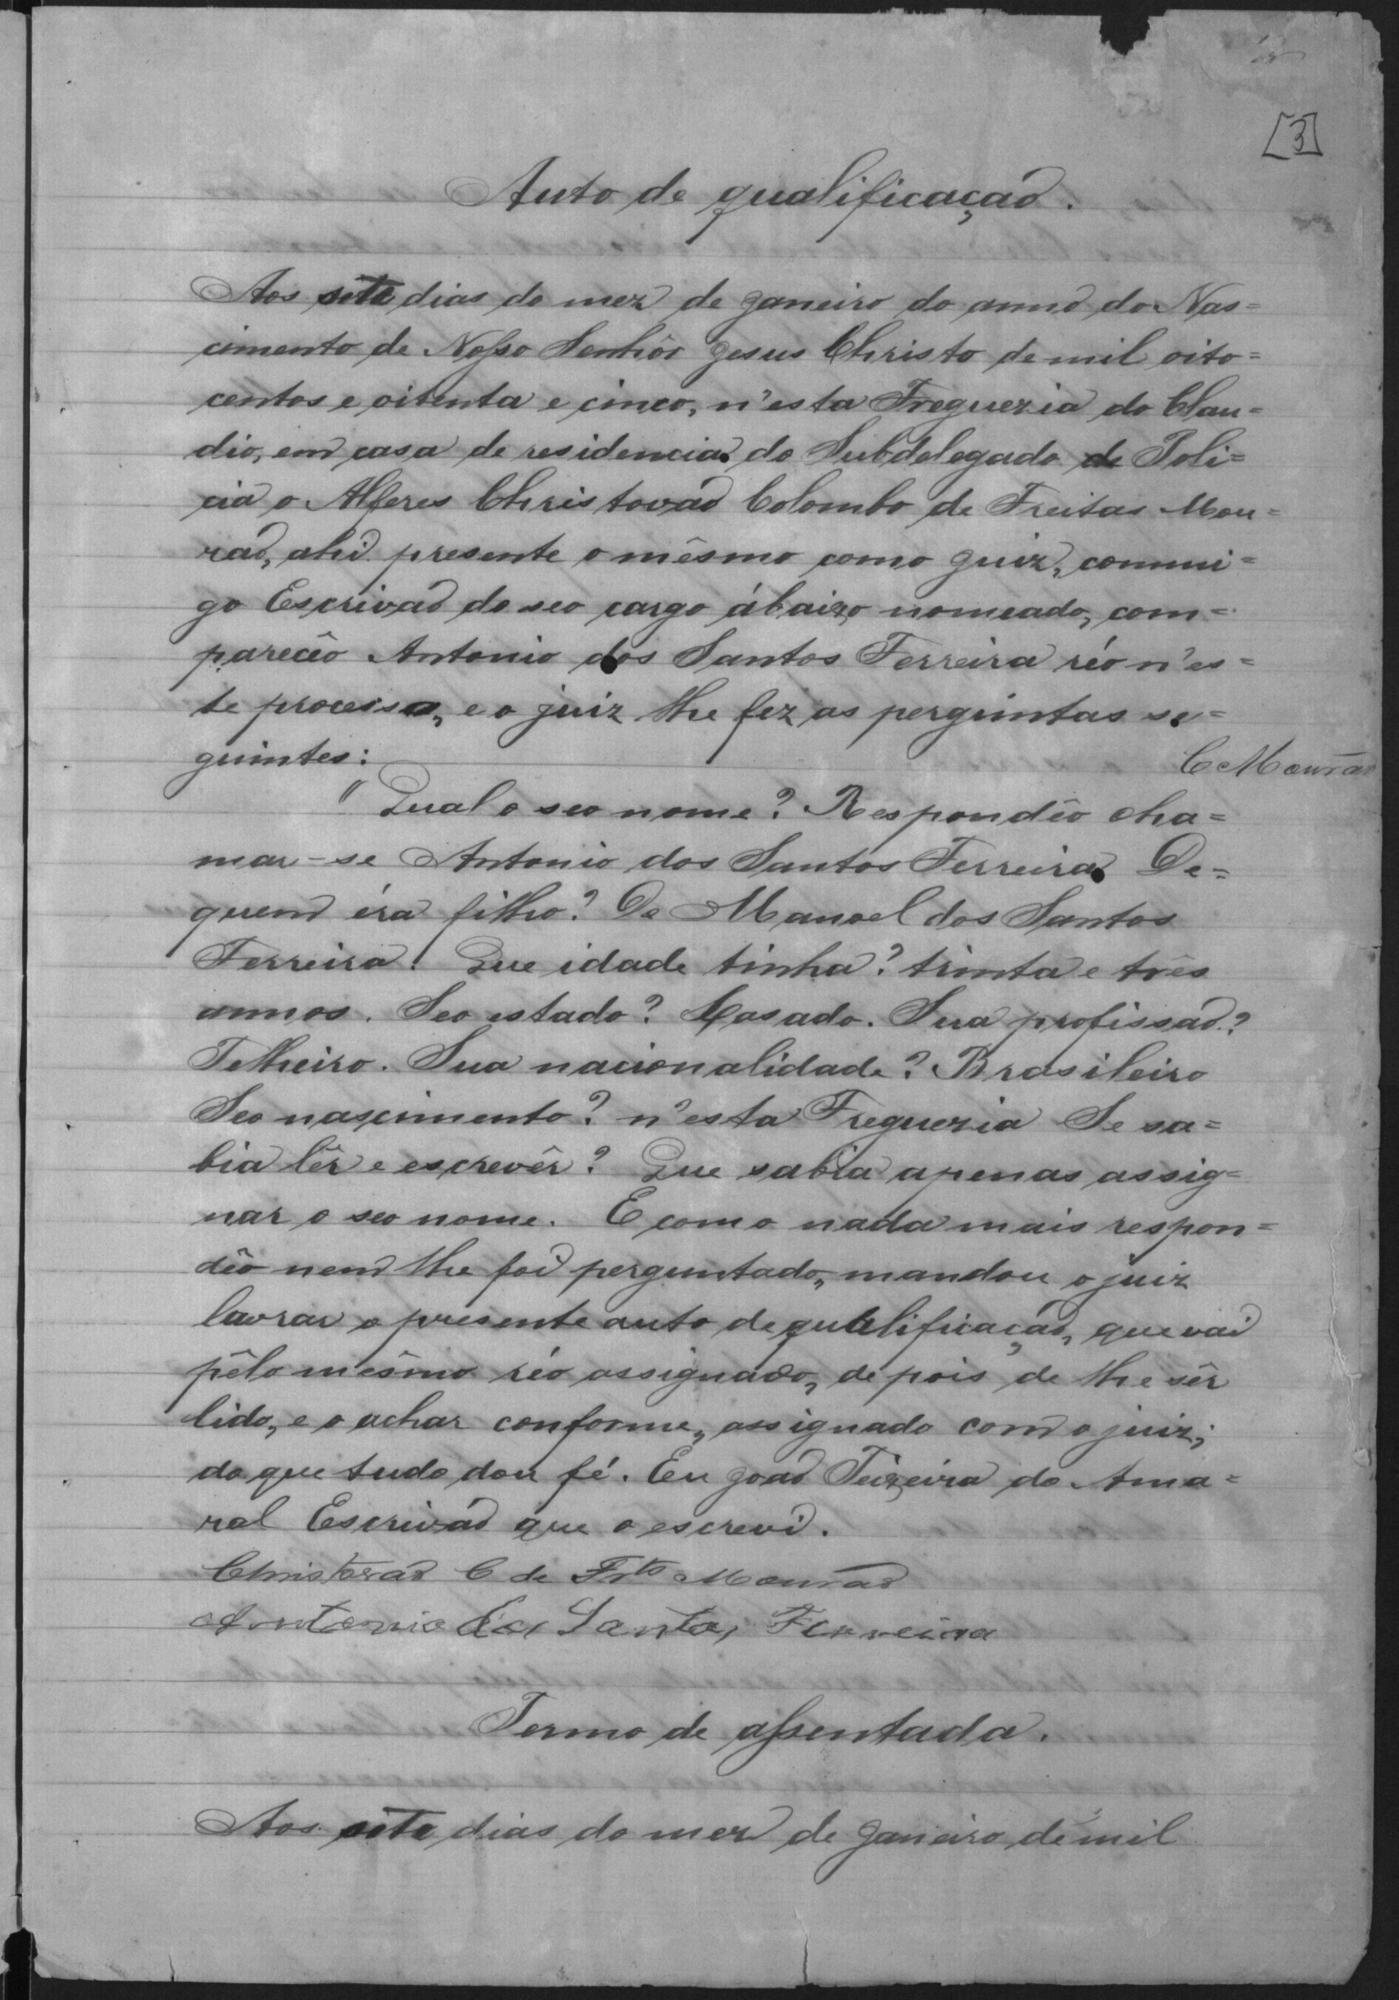 [3]
Auto de qualificação.
Aos sete dias do mez de janeiro do anno do Nas=
cimento de Nosso Senhôr Jesus Christo de mil oito=
centos e oitenta e cinco, n'esta Freguezia do Clau=
dio, em casa de residencia do Subdelegado de Poli=
cia o Alferes Christovaõ Colombo de Freitas Mou=
raõ, ahi presente o mêsmo como juiz, commi=
go Escrivaõ do seo cargo ábaixo nomeado, com=
parecêo Antonio dos Santos Ferreira réo n'es=
te processo, e o juiz lhe fez as perguntas se=
guintes:
C Mouraõ
Qual o seo nome? Respondêo cha=
mar-se Antonio dos Santos Ferreira. De=
quem éra filho? De Manoel dos Santos
Ferreira. Que idade tinha? trinta e três
annos. Seo estado? Casado. Sua profissaõ?
Telheiro. Sua nacionalidade? Brasileiro
Seo nascimento? n'esta Freguezia Se sa=
bia lêr e escrevêr? Que sabia apenas assig=
nar o seo nome. E como nada mais respon=
dêo nem lhe foi perguntado, mandou o juiz
lavrar o presente auto de qualificaçaõ, que vai
pêlo mêsmo réo assignado, depois de lhe sêr
lido, e o achar conforme, assignado com o juiz;
do que tudo dou fé. Eu Joaõ Teixeira do Ama=
ral Escrivaõ que o escrevi.
Christovaõ C de Frtas Mouraõ
Antonio dos Santos Ferreira
Termo de assentada.
Aos sete dias do mez de janeiro de mil